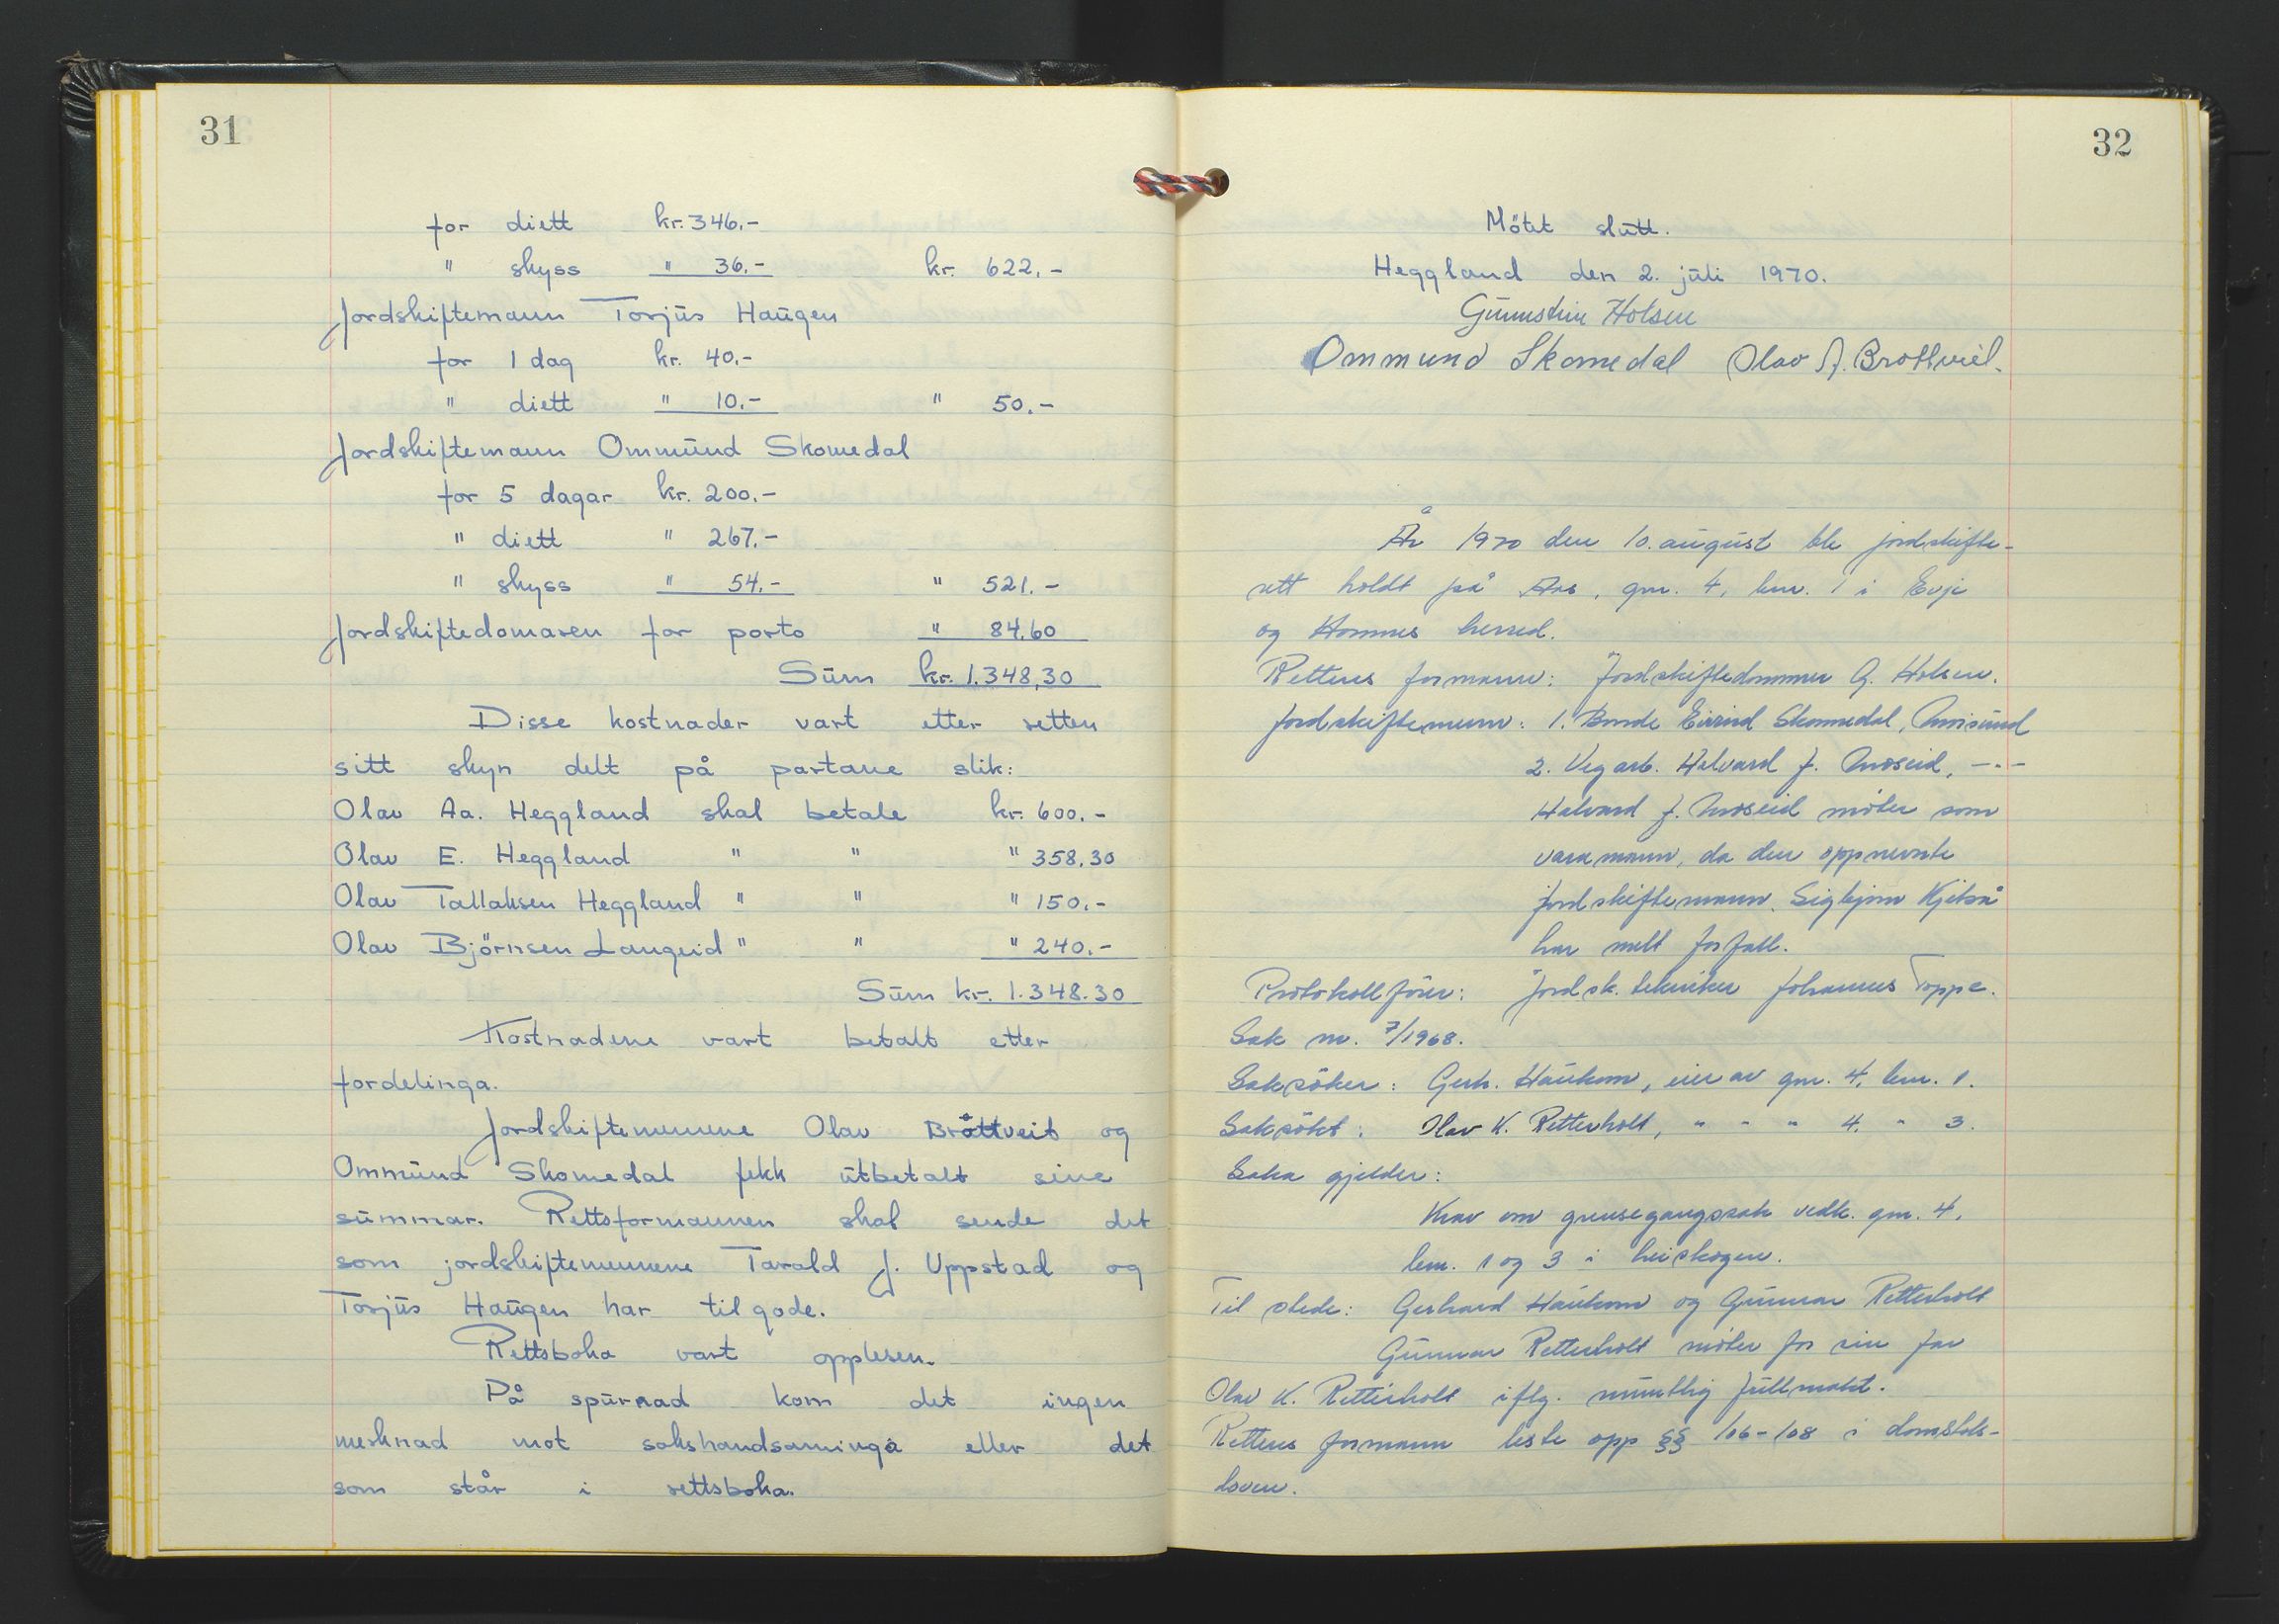 31
for diett kr. 346.-
" skyss " 36.- kr. 622.-
Jordskiftemann Torjus Haugen
for 1 dag kr. 40.-
" diett " 10.- " 50.-
Jordskiftemann Ommund Skomedal
for 5 dagar kr. 200.-
" diett " 267.-
" skyss " 54.- " 521.-
Jordskiftedomaren for porto " 84,60
Sum kr. 1.348,30
Disse kostnader vart etter retten
sitt skyn delt på partane slik:
Olav Aa. Heggland skal betale kr. 600.-
Olav E. Heggland " " " 358.30
Olav Tallaksen Heggland " " " 150.-
Olav Björnsen Langeid " " " 240.-
Sum kr. 1.348.30
Kostnadene vart betalt etter
fordelinga.
Jordskiftemennene Olav Bråttveit og
Ommund Skomedal fekk utbetalt sine
summar. Rettsformannen skal sende det
som jordskiftemennene Tarald J. Uppstad og
Torjus Haugen har tilgode.
Rettsboka vart opplesen.
På spurnad kom det ingen
merknad mot sakshandsaminga eller det
som står i rettsboka.
32
Mötet slutt.
Heggland den 2. juli 1970.
Gunnstein Holsen
Ommund Skomedal Olav J. Brottveit.
År 1970 den 10. august ble jordskifte-
rett holdt på Aas, gnr. 4, bnr. 1 i Evje
og Hornnes herred.
Rettens formann: Jordskiftedommer G. Holsen.
Jordskiftemenn: 1. Bonde Eivind Skomedal,
2. Vegarb. Halvard J. Moseid, -"-
Halvard J. Moseid möter som
varamann, da den oppnevnte
jordskiftemann Sigbjörn Kjetså
har meldt forfall.
Protokollförer: Jordsk.tekniker Johannes Toppe.
Sak nr. 7/1968.
Saksöker: Gerh. Haukom, eier av gnr. 4, bnr. 1.
Saksökt: Olav K. Retterholt, " " " 4. " 3.
Saka gjelder:
Krav om grensegangssak vedk. gnr. 4,
bnr. 1 og 3 i heiskogen.
Til stede: Gerhard Haukom og Gunnar Retterholt
Gunnar Retterholt möter for sin far
Olav K. Retterholt iflg. muntlig fullmakt.
Rettens formann leste opp §§ 106-108 i domstols-
loven.